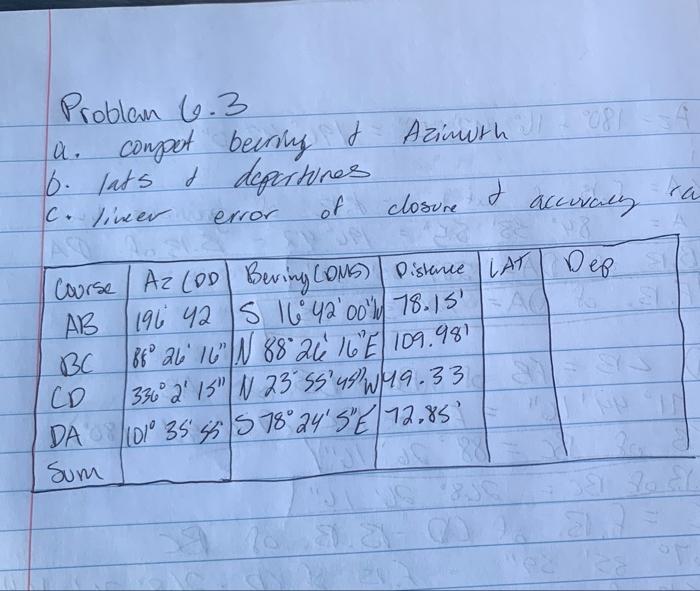 Problem 6.3
a. comput bearing & Azimuth
b. lats & departures
c. linear error of closure & accuracy ra
Course AZ (DD Bering (DMS) Distance LAT Dep
AB 196° 42 S 16° 42' 00" W 78.15'
BC 88° 26' 16" N 88° 26' 16" E 109.98'
CD 336° 2' 15" N 23° 55' 45" W 49.33
DA 101° 35' 55 S 78° 24' 5" E 72.85'
Sum